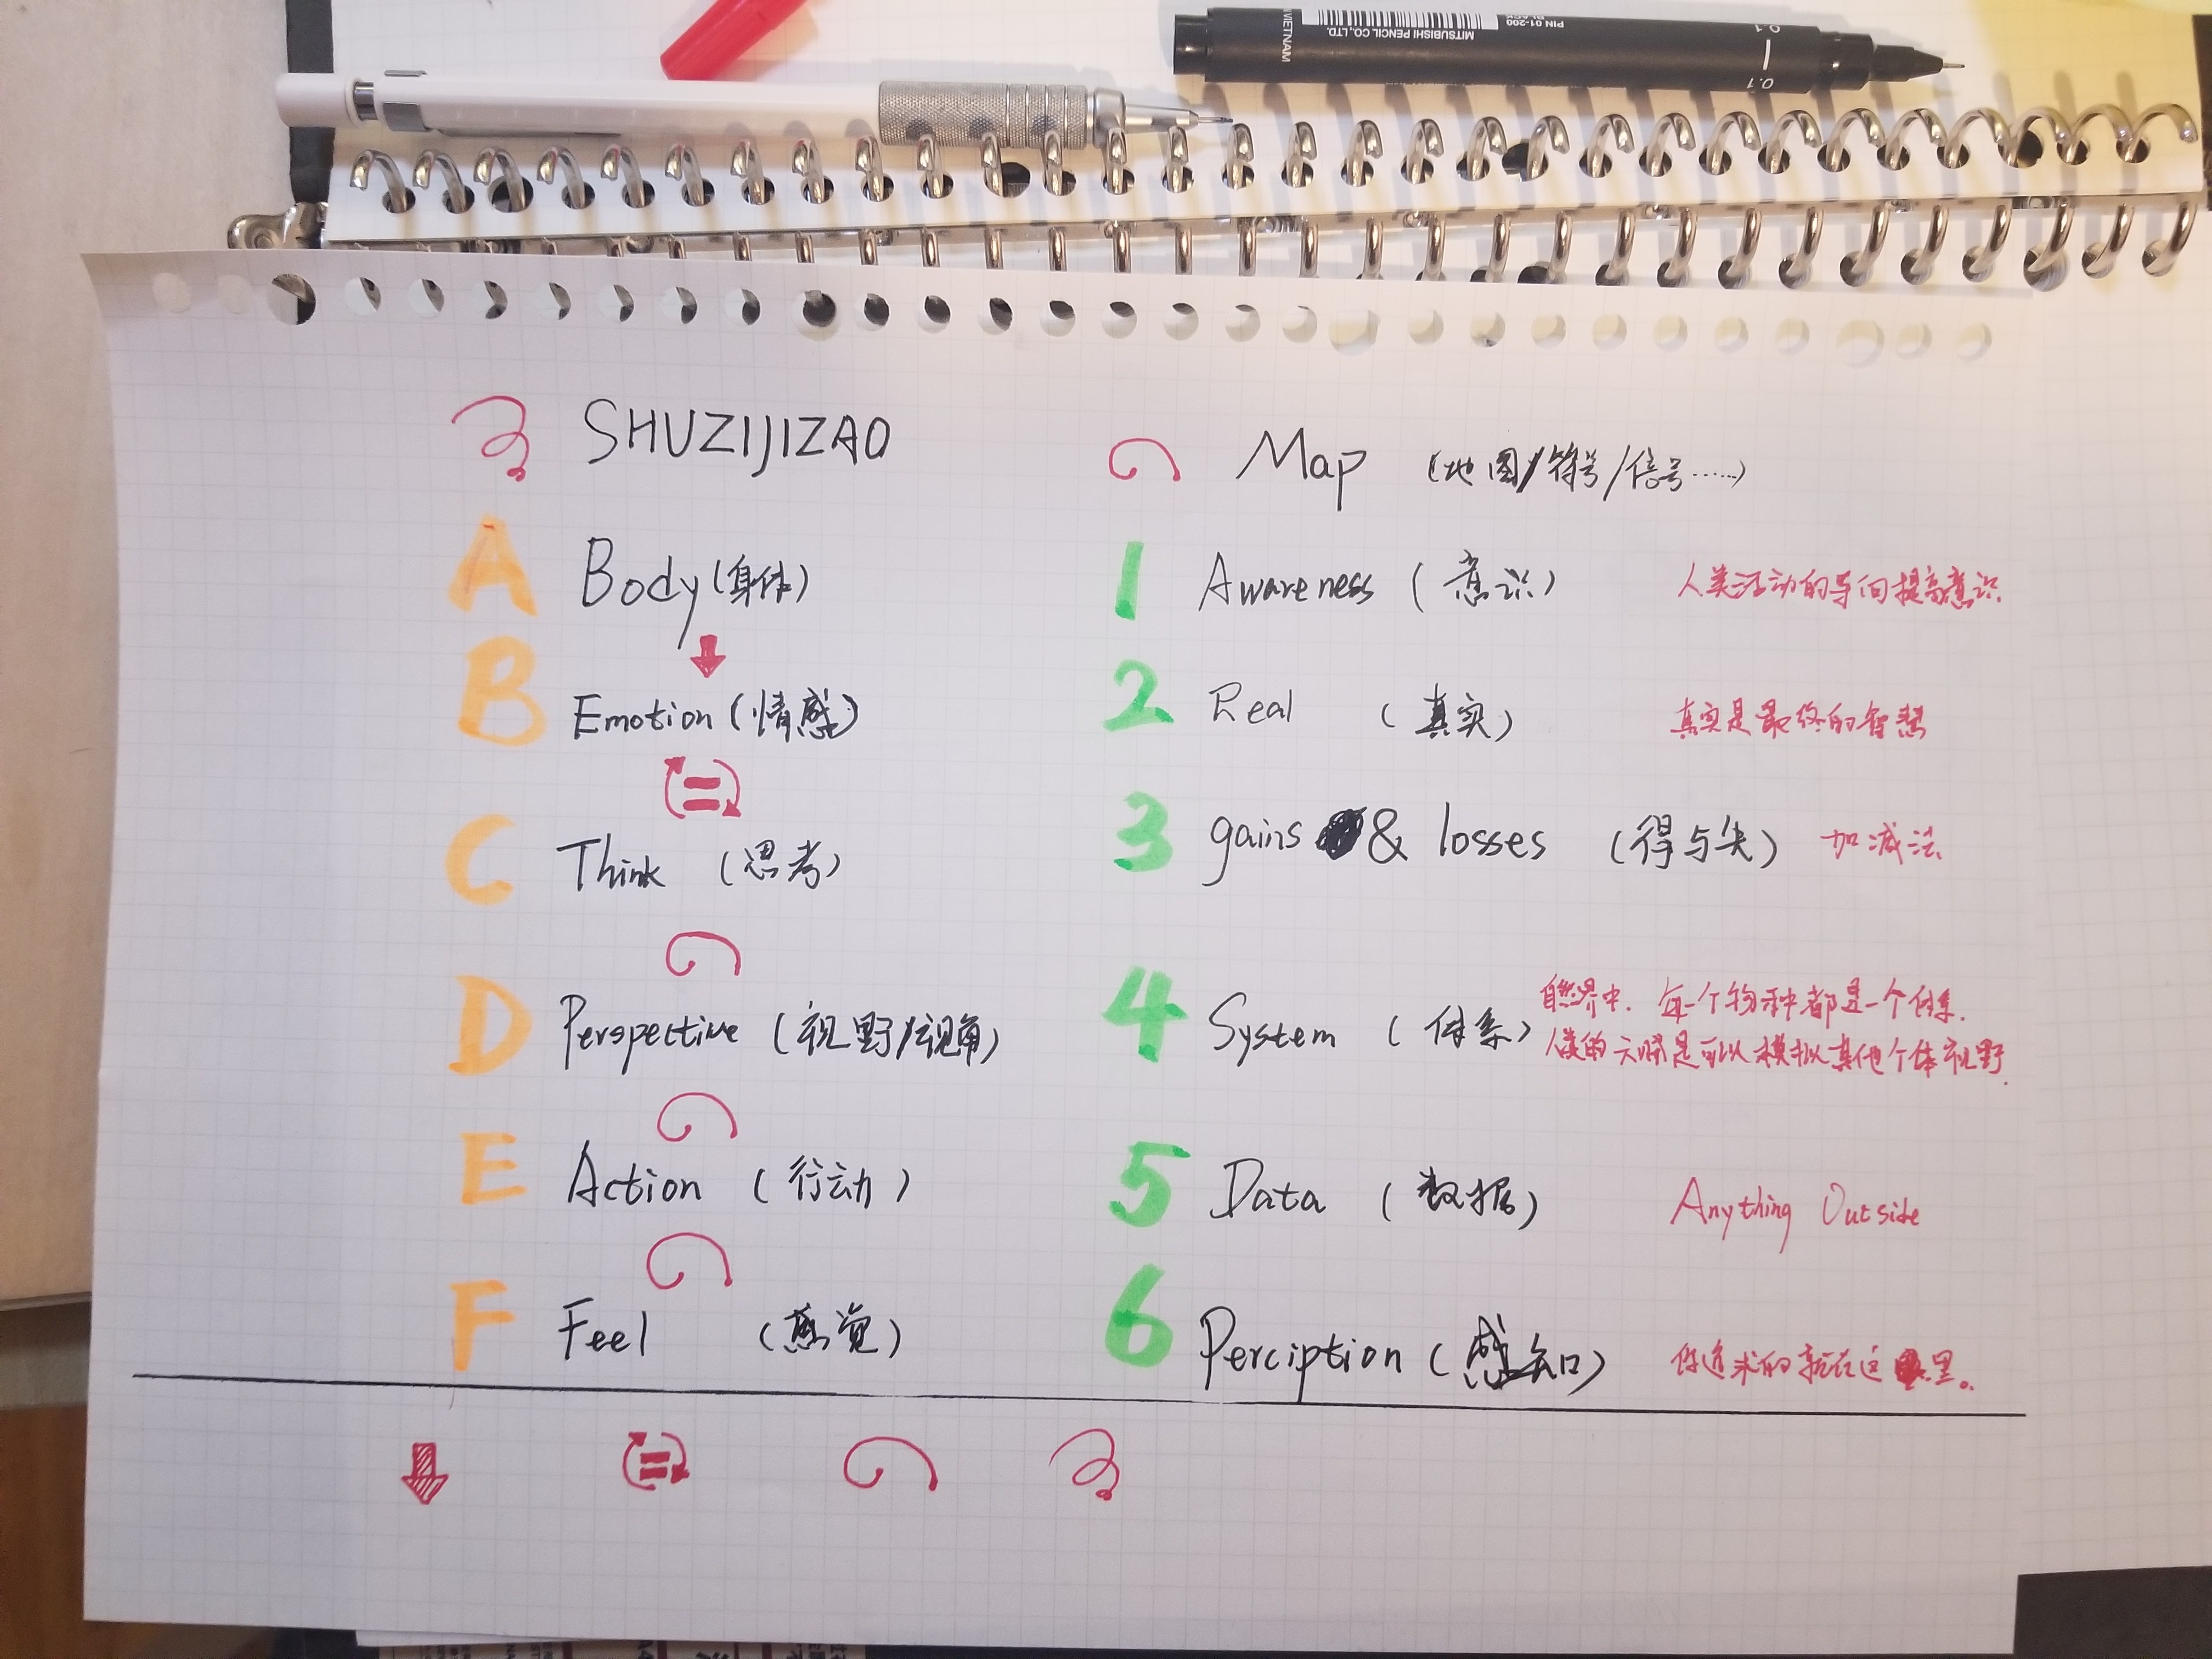 MITSUBISHI PENCIL CO., LTD.
VIETNAM
PIN 01-200
BLACK
0.1
0.1
SHUZIJIZAO
A Body (身体)
B Emotion (情感)
C Think (思考)
D Perspective (视野/视角)
E Action (行动)
F Feel (感觉)
Map (地图/符号/信号……)
1 Awareness (意识) 人类活动的导向提高意识
2 Real (真实) 真实是最终的智慧
3 gains & losses (得与失) 加减法
4 System (体系) 自然界中. 每一个物种都是一个体系.
人类的是可以模拟其他个体视野.
5 Data (数据) Anything Outside
6 Perciption (感知) 你追求的就在这里。